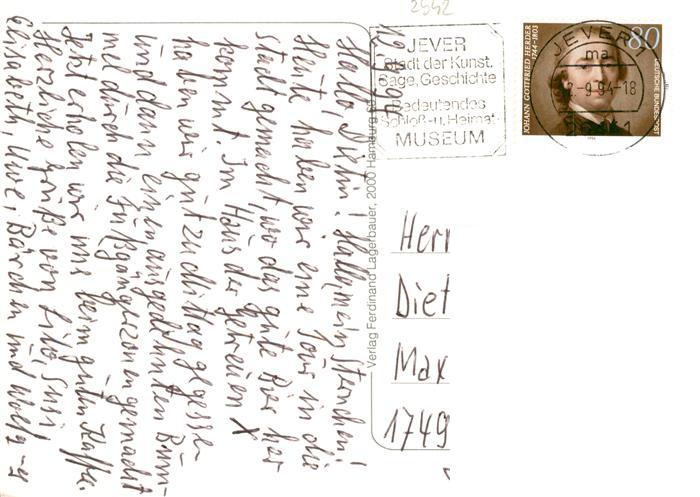 12.9.94
Hallo, Dietm! Hallo mein Sternchen!
Heute haben wir eine Tour in die
Stadt gemacht, wo das gute Bier her
kommt. Im Haus der Getreuen X
haben wir gut zu Mittag gegesse-
und dann einen ausgedehnten Bum-
mel durch die Fußgängerzonen gemacht
Jetzt erholen wir uns beim guten Kaffee.
Herzliche Grüße von Lilo, Susi
Elisabeth, Uwe, Bärchen und Wolfg-g
Verlag Ferdinand Lagerbauer, 2000 Hamburg
JEVER
Stadt der Kunst.
Sage, Geschichte
Bedeutendes
Schloß-u. Heimat-
MUSEUM
JOHANN GOTTFRIED HERDER
1744-1803
80
DEUTSCHE BUNDESPOST
JEVER
ma
2-9.94-18
Herr
Diet
Max
1749